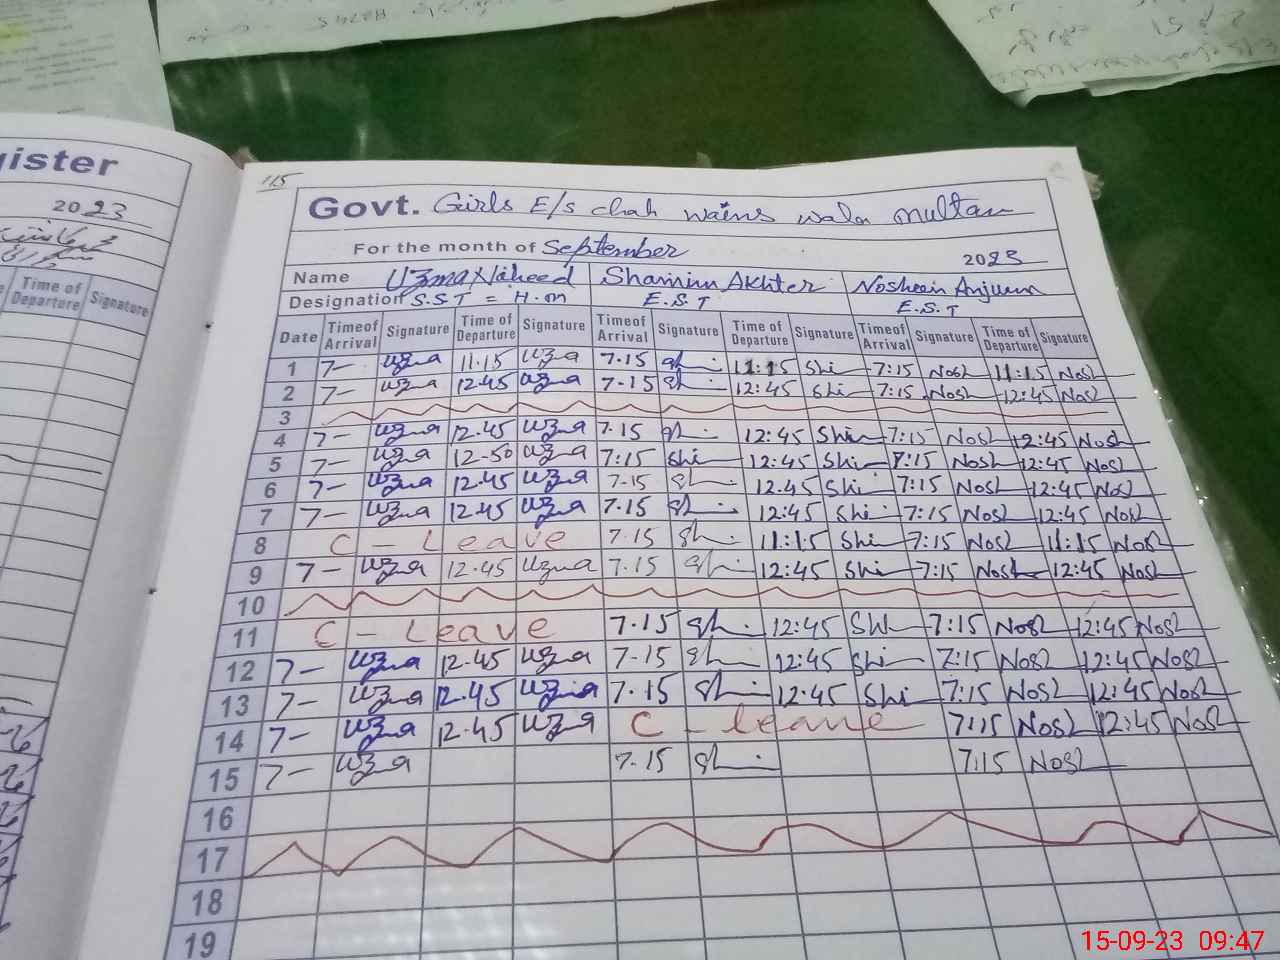 gister
2023
Time of Departure Signature
115
Govt. Girls E/s chah wains wala multan
For the month of September 2023
Name Uzma Naheed Shamim Akhter Nosheen Anjum
Designation S.S.T = H.m E.S.T E.S.T
Date Time of Arrival Signature Time of Departure Signature Time of Arrival Signature Time of Departure Signature Time of Arrival Signature Time of Departure Signature
1 7- uzma 11.15 uzma 7.15 Sh. 11:15 Shi 7:15 Nosh 11:15 Nosh
2 7- uzma 12.45 uzma 7.15 Sh. 12:45 Shi 7:15 Nosh 12:45 Nosh
3
4 7- uzma 12.45 uzma 7.15 Sh. 12:45 Shi 7:15 Nosh 12:45 Nosh
5 7- uzma 12-50 uzma 7:15 Shi 12:45 Shi 7:15 Nosh 12:45 Nosh
6 7- uzma 12.45 uzma 7.15 Sh. 12.45 Shi 7:15 Nosh 12:45 Nosh
7 7- uzma 12.45 uzma 7.15 Sh. 12:45 Shi 7:15 Nosh 12:45 Nosh
8 C - Leave 7.15 Sh. 11:15 Shi 7:15 Nosh 11:15 Nosh
9 7- uzma 12.45 uzma 7.15 Sh. 12:45 Shi 7:15 Nosh 12:45 Nosh
10
11 C - Leave 7.15 Sh. 12:45 Shi 7:15 Nosh 12:45 Nosh
12 7- uzma 12.45 uzma 7.15 Sh. 12:45 Shi 7:15 Nosh 12:45 Nosh
13 7- uzma 12.45 uzma 7.15 Sh. 12:45 Shi 7:15 Nosh 12:45 Nosh
14 7- uzma 12.45 uzma C - leave 7:15 Nosh 12:45 Nosh
15 7- uzma 7.15 Sh. 7:15 Nosh
16
17
18
19
15-09-23 09:47